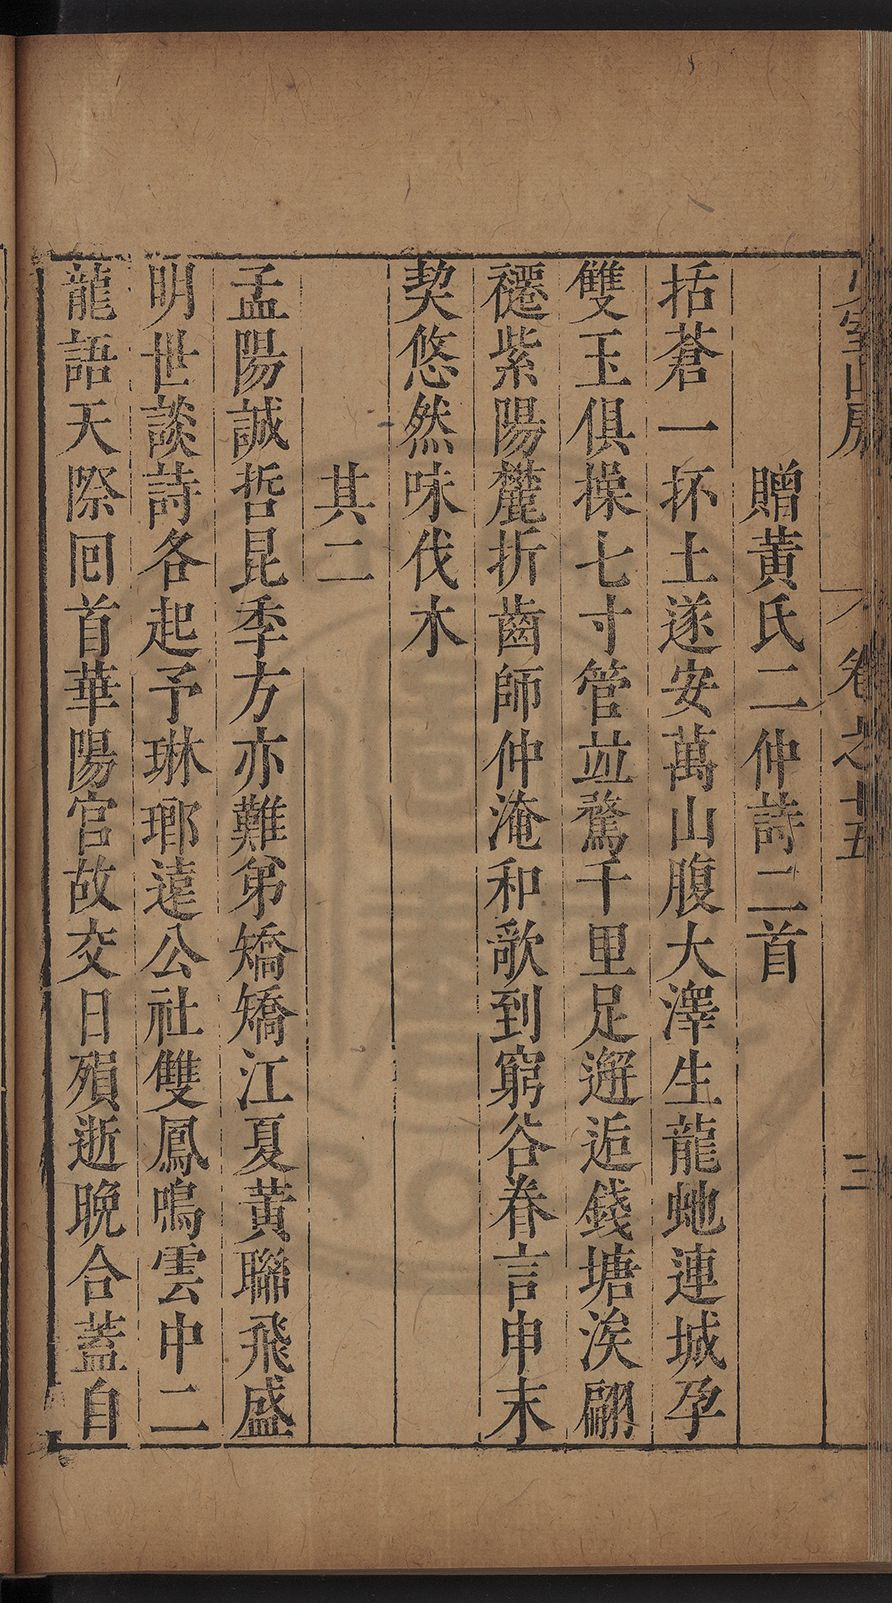 少室山房
卷之十五
三
贈黃氏二仲詩二首
括蒼一抔土遂安萬山腹大澤生龍虵連城孕
雙玉俱操七寸管竝騖千里足邂逅錢塘涘翩
襹紫陽麓折齒師仲淹和歌到窮谷眷言申末
契悠然味伐木
其二
孟陽誠哲昆季方亦難弟矯矯江夏黃聯飛盛
明世談詩各起予琳瑯遠公社雙鳳鳴雲中二
龍語天際囘首華陽宫故交日殞逝晚合蓋自